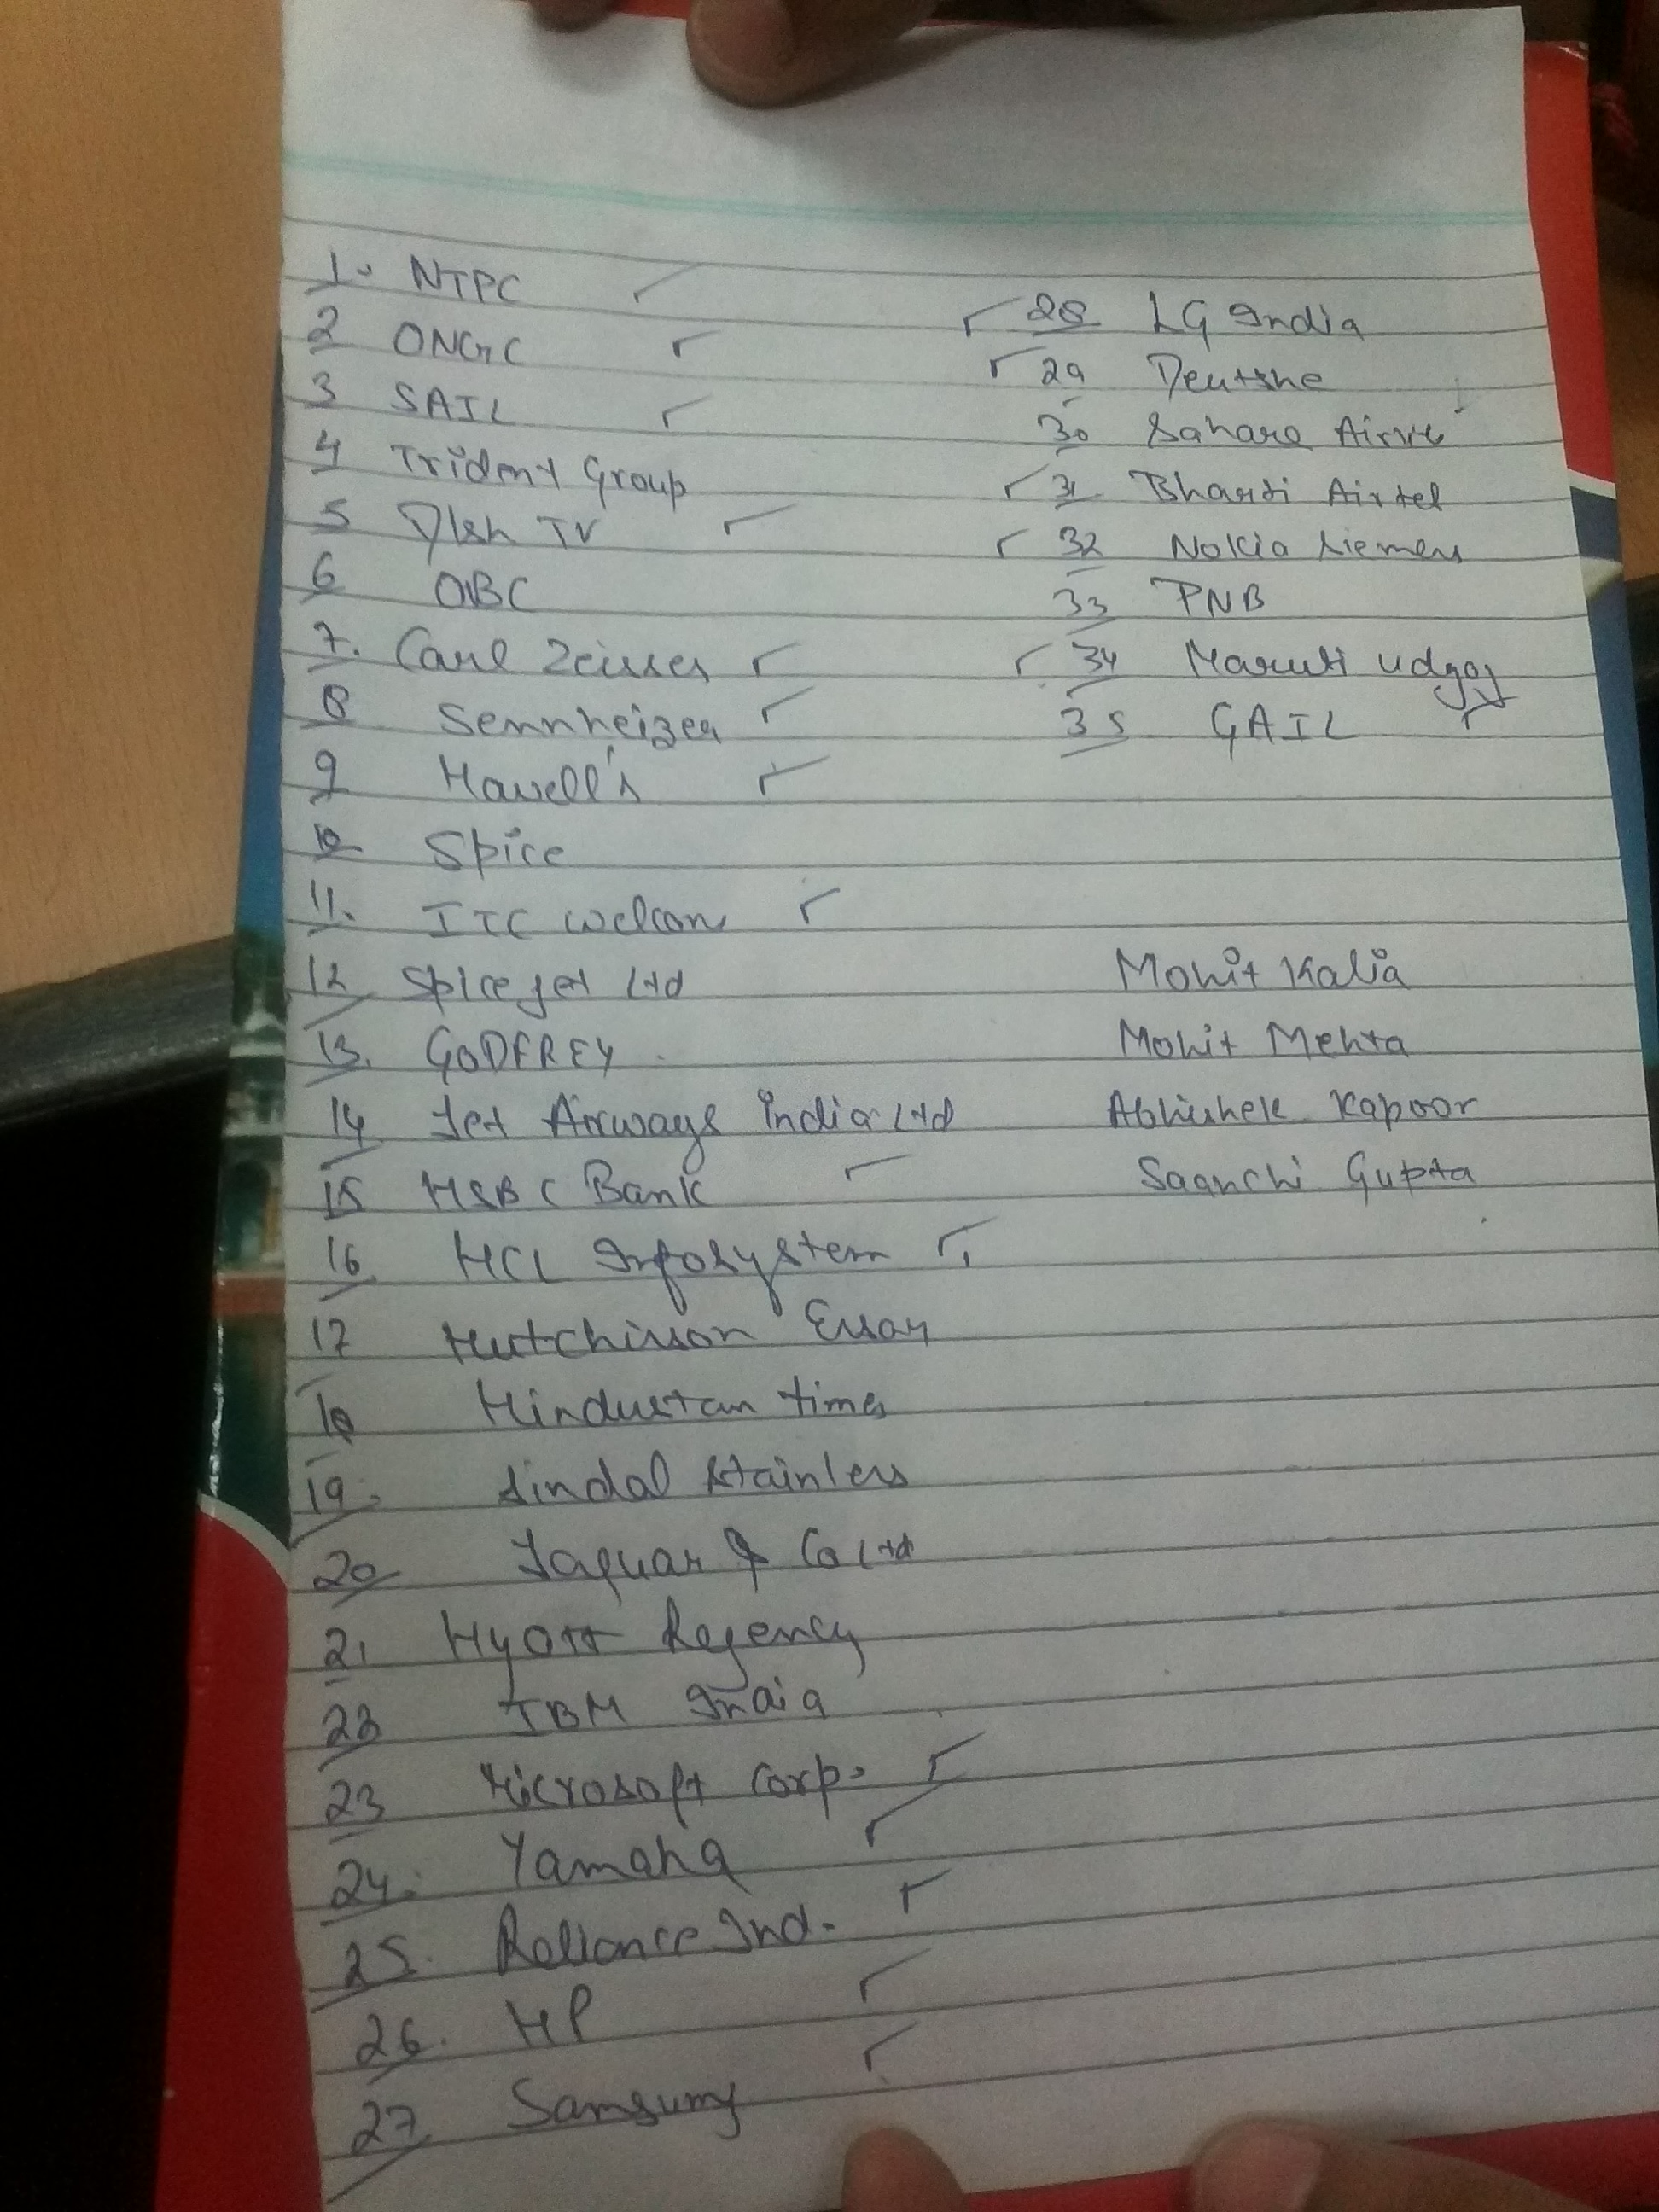 1. NTPC ✓
2 ONGC ✓
3 SAIL ✓
4 Trident Group
5 Dish TV ✓
6 OBC
7. Carl Zeisses ✓
8 Sennheizer ✓
9 Havell's ✓
10 Spice
11. ITC Welcom ✓
12 Spice Jet Ltd
13. GODFREY
14 Jet Airways India Ltd
15 HSBC Bank ✓
16 HCL Infosystem ✓
17 Hutchisson Essar
18 Hindustan times
19. Jindal Stainless
20 Jaquar & Co Ltd
21 Hyatt Regency
22 IBM India
23 Microsoft Corp. ✓
24. Yamaha ✓
25. Reliance Ind. ✓
26. HP ✓
27 Samsung ✓
✓ 28 LG India
✓ 29 Deutshe
30 Sahara
✓ 31 Bharti Airtel
✓ 32 Nokia Siemens
33 PNB
✓ 34 Maruti udyog
35 GAIL ✓
Mohit Kalia
Mohit Mehta
Abhishek Kapoor
Saanchi Gupta